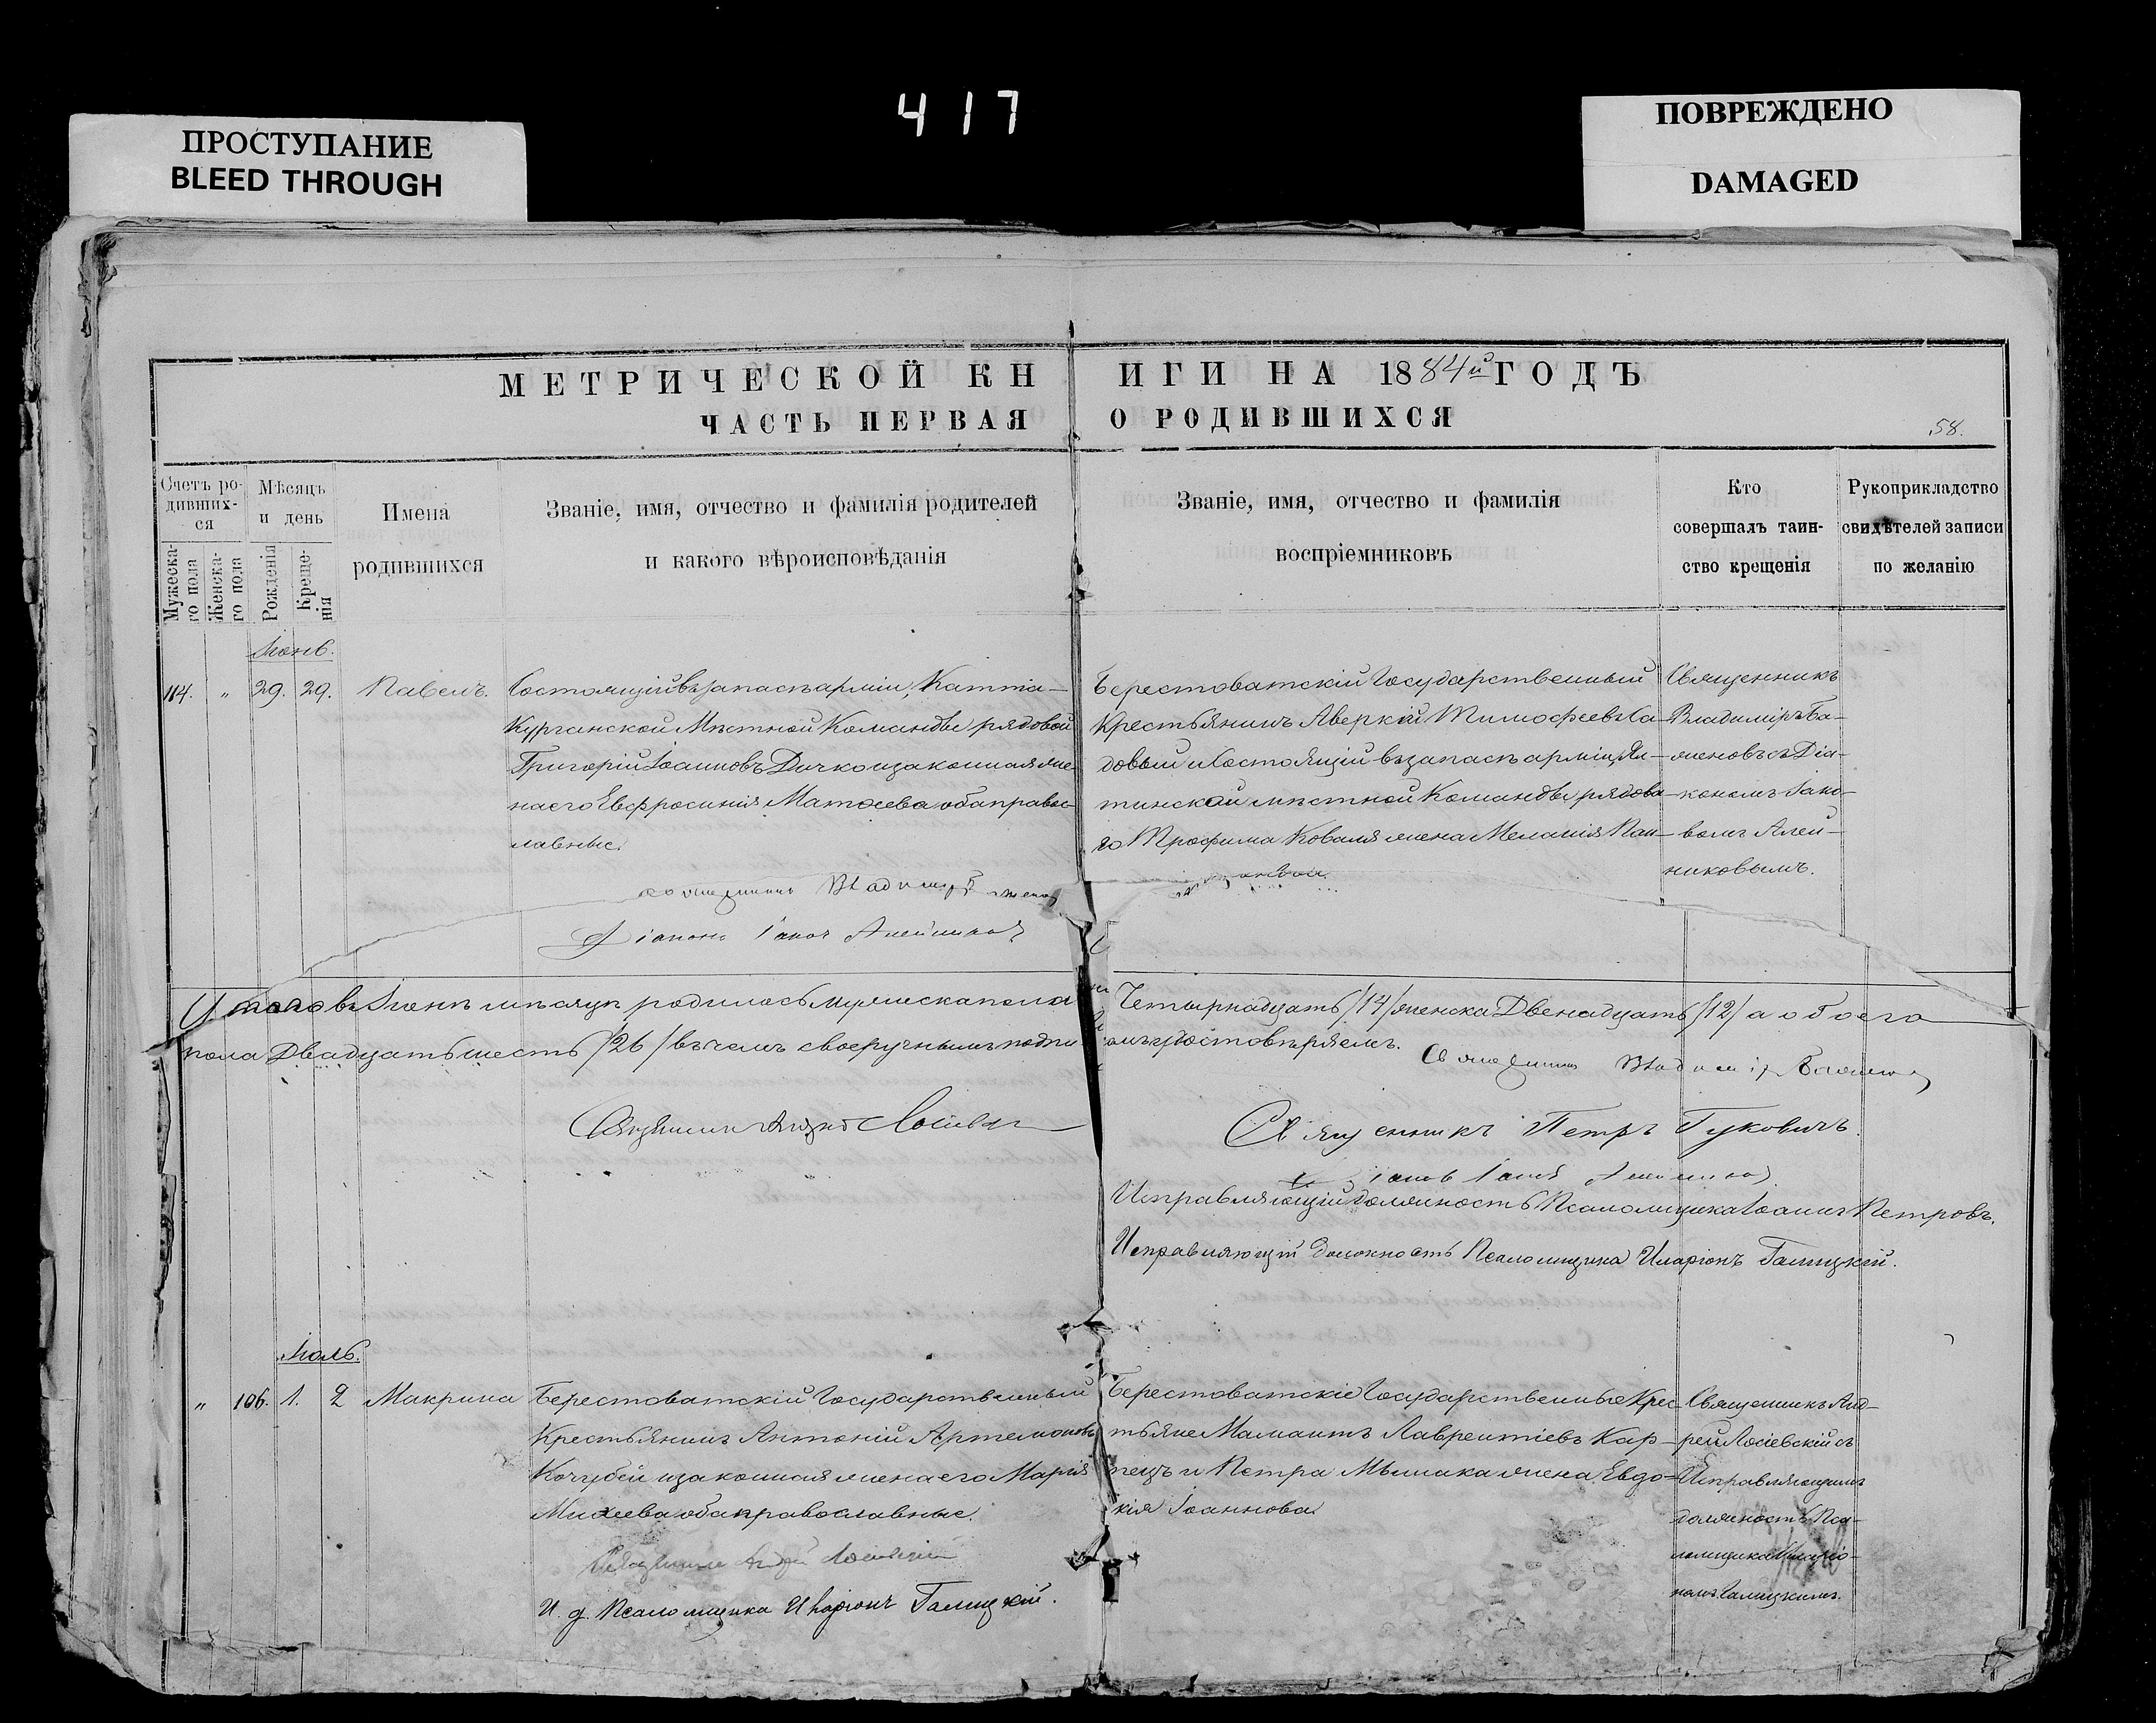 417
ПРОСТУПАНИЕ
BLEED THROUGH
ПОВРЕЖДЕНО
DAMAGED
МЕТРИЧЕСКОЙ КНИГИ НА 1884й ГОДЪ
ЧАСТЬ ПЕРВАЯ О РОДИВШИХСЯ
58.
Счетъ ро-
дивших-
ся
Мужеска-
го пола
Женска-
го пола
Мѣсяцъ
и день
Рожденія
Креще-
нія
Имена
родившихся
Званіе, имя, отчество и фамилія родителей
и какого вѣроисповѣданія
Званіе, имя, отчество и фамилія
воспріемниковъ
Кто
совершалъ таин-
ство крещенія
Рукоприкладство
свидѣтелей записи
по желанію
Іюнь.
114. „ 29. 29. Павелъ.
Состоящій въ запасѣ арміи, Катта-
Курганской Мѣстной Команды рядовой
Григорій Іоанновъ Дичко и законная же-
на его Евфросинія Матѳеева оба право-
лавные.
Берестоватскій Государственный
Крестьянинъ Аверкій Тимофеевъ Са-
довый и Состоящій въ запасѣ арміи, Ял-
тинской мѣстной Команды рядова-
го Трофима Коваля жена Меланія Пан-
Священникъ
Владиміръ Ба-
женовъ съ Діа-
кономъ Іако-
вомъ Алей-
никовымъ.
Священникъ Владиміръ Баженов
Діаконъ Іаков Алейников
Итого въ Іюнѣ мѣсяцѣ родилось мужеска пола Четырнадцать /14/ женска Двенадцать /12/ а обоего
пола Двадцать шесть /26/ въ чемъ своеручнымъ подпи
омъ удостовѣряемъ.
Священникъ Владиміръ Баженов
Священникъ Андрей Лосіевскій
Священникъ Петръ Гуковичъ.
Діаконъ Іаковъ Алейников
Исправляющій должность Псаломщика Іоаннъ Петровъ.
Исправляющій должность Псаломщика Иларіонъ Галицкій.
Іюль.
„ 106. 1. 2 Макрина
Берестоватскій Государственный
Крестьянинъ Антоній Артемоновъ
Кочубей и законная жена его Марія
Михеева оба православные.
Берестоватскіе Государственные Крес-
тьяне Мамантъ Лаврентіевъ Кар-
пецъ и Петра Мышака жена Евдо-
кія Іоаннова
Священникъ Анд-
рей Лосіевскій съ
Исправляющимъ
должность Пса-
ломщика Иларіо-
номъ Галицкимъ.
Священникъ Андрей Лосіевскій
И. д. Псаломщика Иларіонъ Галицкій.